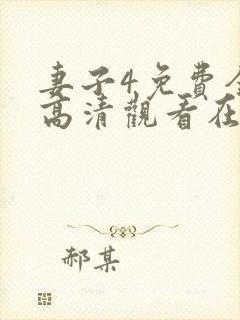 妻子4免費
高清觀看在
郝某